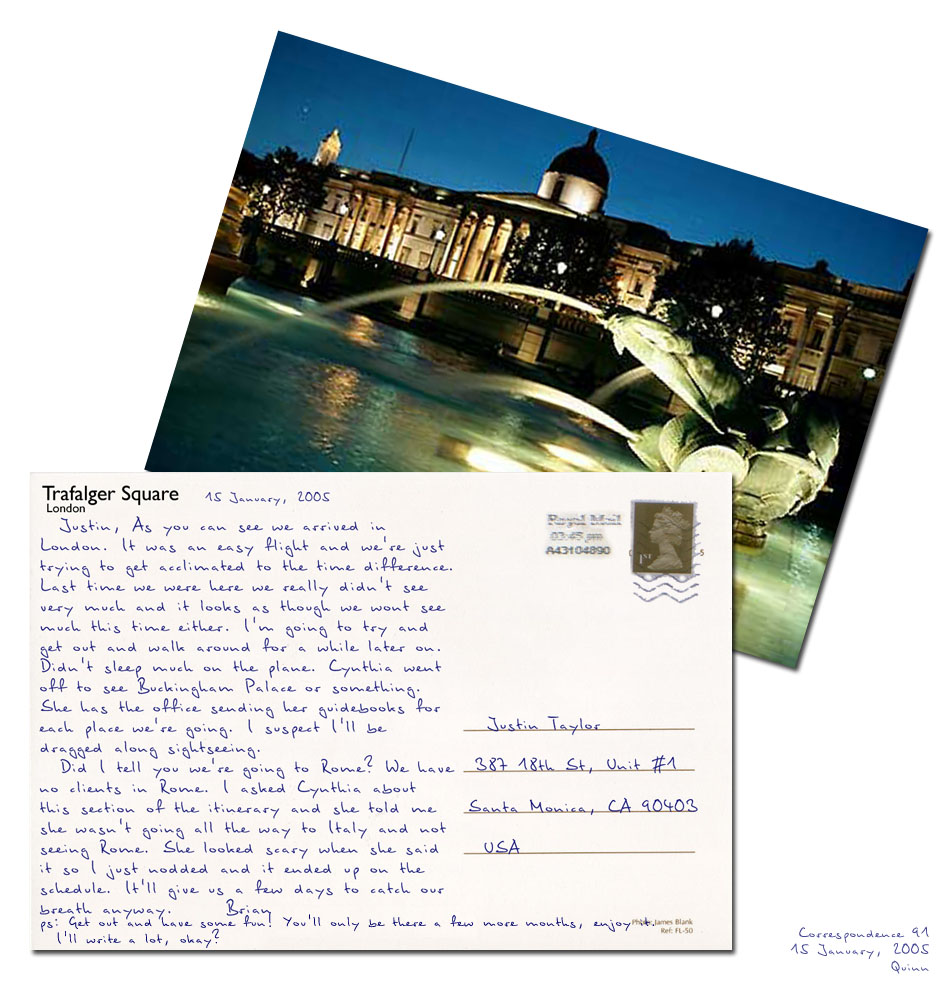 Trafalger Square 15 January, 2005
London
Justin, As you can see we arrived in
London. It was an easy flight and we're just
trying to get acclimated to the time difference.
Last time we were here we really didn't see
very much and it looks as though we wont see
much this time either. I'm going to try and
get out and walk around for a while later on.
Didn't sleep much on the plane. Cynthia went
off to see Buckingham Palace or something.
She has the office sending her guidebooks for
each place we're going. I suspect I'll be
dragged along sightseeing.
Did I tell you we're going to Rome? We have
no clients in Rome. I asked Cynthia about
this section of the itinerary and she told me
she wasn't going all the way to Italy and not
seeing Rome. She looked scary when she said
it so I just nodded and it ended up on the
schedule. It'll give us a few days to catch our
breath anyway. Brian
ps: Get out and have some fun! You'll only be there a few more months, enjoy it.
I'll write a lot, okay?
Royal Mail
03:45 pm
A43104890
1ST
5
Justin Taylor
387 18th St, Unit #1
Santa Monica, CA 90403
USA
Photo: James Blank
Ref: FL-50
Correspondence 91
15 January, 2005
Quinn